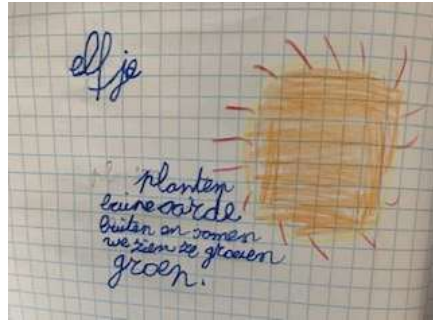 elfje
planten
bruine aarde
buiten en samen
we zien ze groeien
groen.